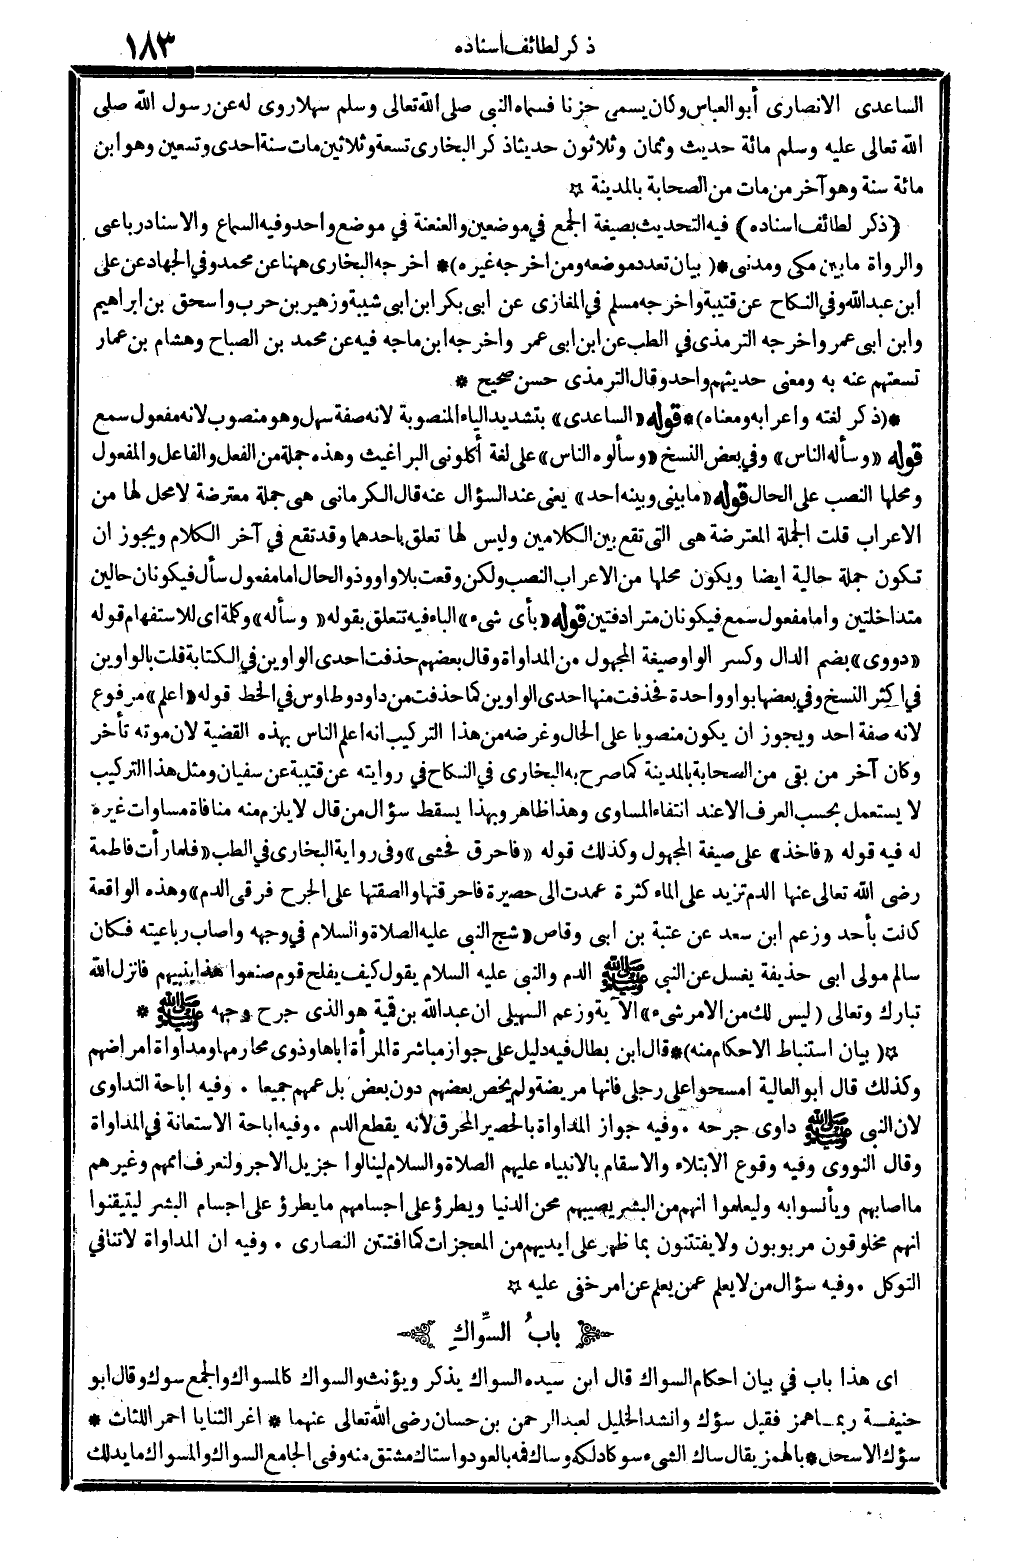 ذكر لطائف اسناده ١٨٣
الساعدى الانصارى أبو العباس وكان يسمى حزنا فسماه النبى صلى الله تعالى وسلم سهلا روى له عن رسول الله صلى
الله تعالى عليه وسلم مائة حديث وثمان وثلاثون حديثا ذكر البخارى تسعة وثلاثين مات سنة احدى وتسعين وهو ابن
مائة سنة وهو آخر من مات من الصحابة بالمدينة ☆
(ذكر لطائف اسناده) فيه التحديث بصيغة الجمع في موضعين والعنعنة في موضع واحد وفيه السماع والاسناد رباعى
والرواة ما بين مكى ومدنى * ( بيان تعدد موضعه ومن اخرجه غيره ) * اخرجه البخارى ههنا عن محمد وفي الجهاد عن على
ابن عبد الله وفي النكاح عن قتيبة واخرجه مسلم في المغازى عن ابى بكر ابن ابى شيبة وزهير بن حرب واسحق بن ابراهيم
وابن ابى عمر واخرجه الترمذى في الطب عن ابن ابى عمر واخرجه ابن ماجه فيه عن محمد بن الصباح وهشام بن عمار
تسعتهم عنه به ومعنى حديثهم واحد وقال الترمذى حسن صحيح *
*(ذكر لغته واعرابه ومعناه)* قوله «الساعدى» بتشديد الياء المنصوبة لانه صفة سهل وهو منصوب لانه مفعول سمع
قوله «وسأله الناس» وفي بعض النسخ «وسألوه الناس» على لغة أكلونى البراغيث وهذه جملة من الفعل والفاعل والمفعول
ومحلها النصب على الحال قوله «ما بينى وبينه احد» يعنى عند السؤال عنه قال الكرمانى هى جملة معترضة لا محل لها من
الاعراب قلت الجملة المعترضة هى التى تقع بين الكلامين وليس لها تعلق باحدهما وقد تقع في آخر الكلام ويجوز ان
تكون جملة حالية ايضا ويكون محلها من الاعراب النصب ولكن وقعت بلا واو وذو الحال اما مفعول سأل فيكونان حالين
متداخلتين واما مفعول سمع فيكونان مترادفتين قوله «بأى شىء» الباء فيه تتعلق بقوله «وسأله» وكلمة اى للاستفهام قوله
«دووى» بضم الدال وكسر الواو صيغة المجهول من المداواة وقال بعضهم حذفت احدى الواوين في الكتابة قلت بالواوين
في اكثر النسخ وفي بعضها بواو واحدة فحذفت منها احدى الواوين كما حذفت من داود وطاوس في الخط قوله «اعلم» مرفوع
لانه صفة احد ويجوز ان يكون منصوبا على الحال وغرضه من هذا التركيب انه اعلم الناس بهذه القضية لان موته تأخر
وكان آخر من بقى من الصحابة بالمدينة كما صرح به البخارى في النكاح في روايته عن قتيبة عن سفيان ومثل هذا التركيب
لا يستعمل بحسب العرف الا عند انتفاء المساوى وهذا ظاهر وبهذا يسقط سؤال من قال لا يلزم منه منافاة مساوات غيره
له فيه قوله «فاخذ» على صيغة المجهول وكذلك قوله «فاحرق فحشى» وفى رواية البخارى في الطب «فلما رأت فاطمة
رضى الله تعالى عنها الدم تزيد على الماء كثرة عمدت الى حصيرة فاحرقتها والصقتها على الجرح فرقى الدم» وهذه الواقعة
كانت بأحد وزعم ابن سعد عن عتبة بن ابى وقاص «شج النبى عليه الصلاة والسلام في وجهه واصاب رباعيته فكان
سالم مولى ابى حذيفة يغسل عن النبى ﷺ الدم والنبى عليه السلام يقول كيف يفلح قوم صنعوا هذا بنبيهم فانزل الله
تبارك وتعالى (ليس لك من الامر شىء)» الآية وزعم السهيلى ان عبد الله بن قمية هو الذى جرح وجهه ﷺ *
☆( بيان استنباط الاحكام منه)* قال ابن بطال فيه دليل على جواز مباشرة المرأة اباها وذوى محارمها ومداواة امراضهم
وكذلك قال ابو العالية امسحوا على رجلى فانها مريضة ولم يخص بعضهم دون بعض بل عمهم جميعا . وفيه اباحة التداوى
لان النبى ﷺ داوى جرحه . وفيه جواز المداواة بالحصير المحرق لأنه يقطع الدم . وفيه اباحة الاستعانة في المداواة
وقال النووى وفيه وقوع الابتلاء والاسقام بالانبياء عليهم الصلاة والسلام لينالوا جزيل الاجر ولتعرف اممهم وغيرهم
ما اصابهم ويأنسوا به وليعلموا انهم من البشر يصيبهم محن الدنيا ويطرؤ على اجسامهم ما يطرؤ على اجسام البشر ليتيقنوا
انهم مخلوقون مربوبون ولا يفتتنون بما ظهر على ايديهم من المعجزات كما افتتن النصارى . وفيه ان المداواة لا تنافي
التوكل . وفيه سؤال من لا يعلم عمن يعلم عن امر خفى عليه ☆
بابُ السِّواكِ
اى هذا باب في بيان احكام السواك قال ابن سيده السواك يذكر ويؤنث والسواك كالمسواك والجمع سوك وقال ابو
حنيفة ربما همز فقيل سؤك وانشد الخليل لعبد الرحمن بن حسان رضى الله تعالى عنهما * اغر الثنايا احمر اللثات *
سؤك الاسحل * بالهمز يقال ساك الشىء سوكا دلكه وساك فمه بالعود واستاك مشتق منه وفى الجامع السواك والمسواك ما يدلك